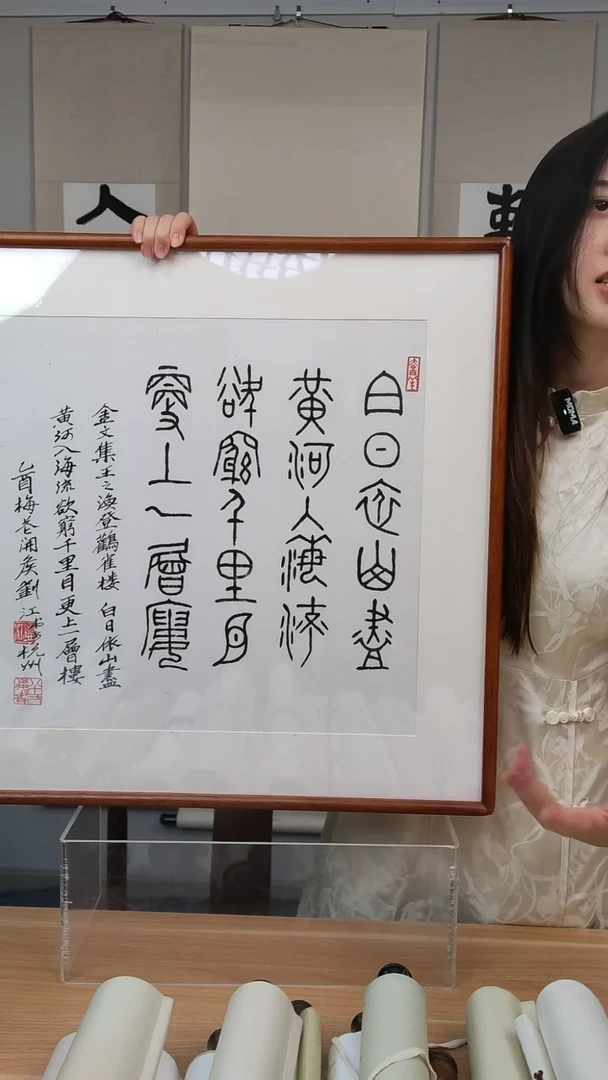 白日依山盡
黃河入海流
欲窮千里目
更上一層樓
金文集王之渙登鸛雀樓 白日依山盡
黃河入海流欲窮千里目更上一層樓
乙酉梅花開矣劉江書於杭州
入
MOMA